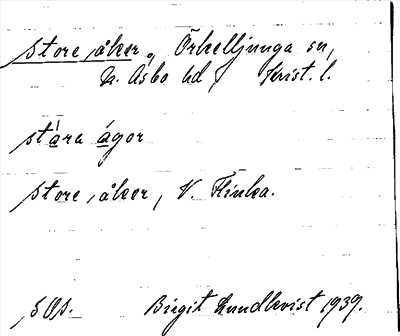 Store åker, Örkelljunga sn,
N. Åsbo hd, Krist. l.
stára ágor
Store åker, V. Flinka.
SOS. Birgit Lundkvist 1939.